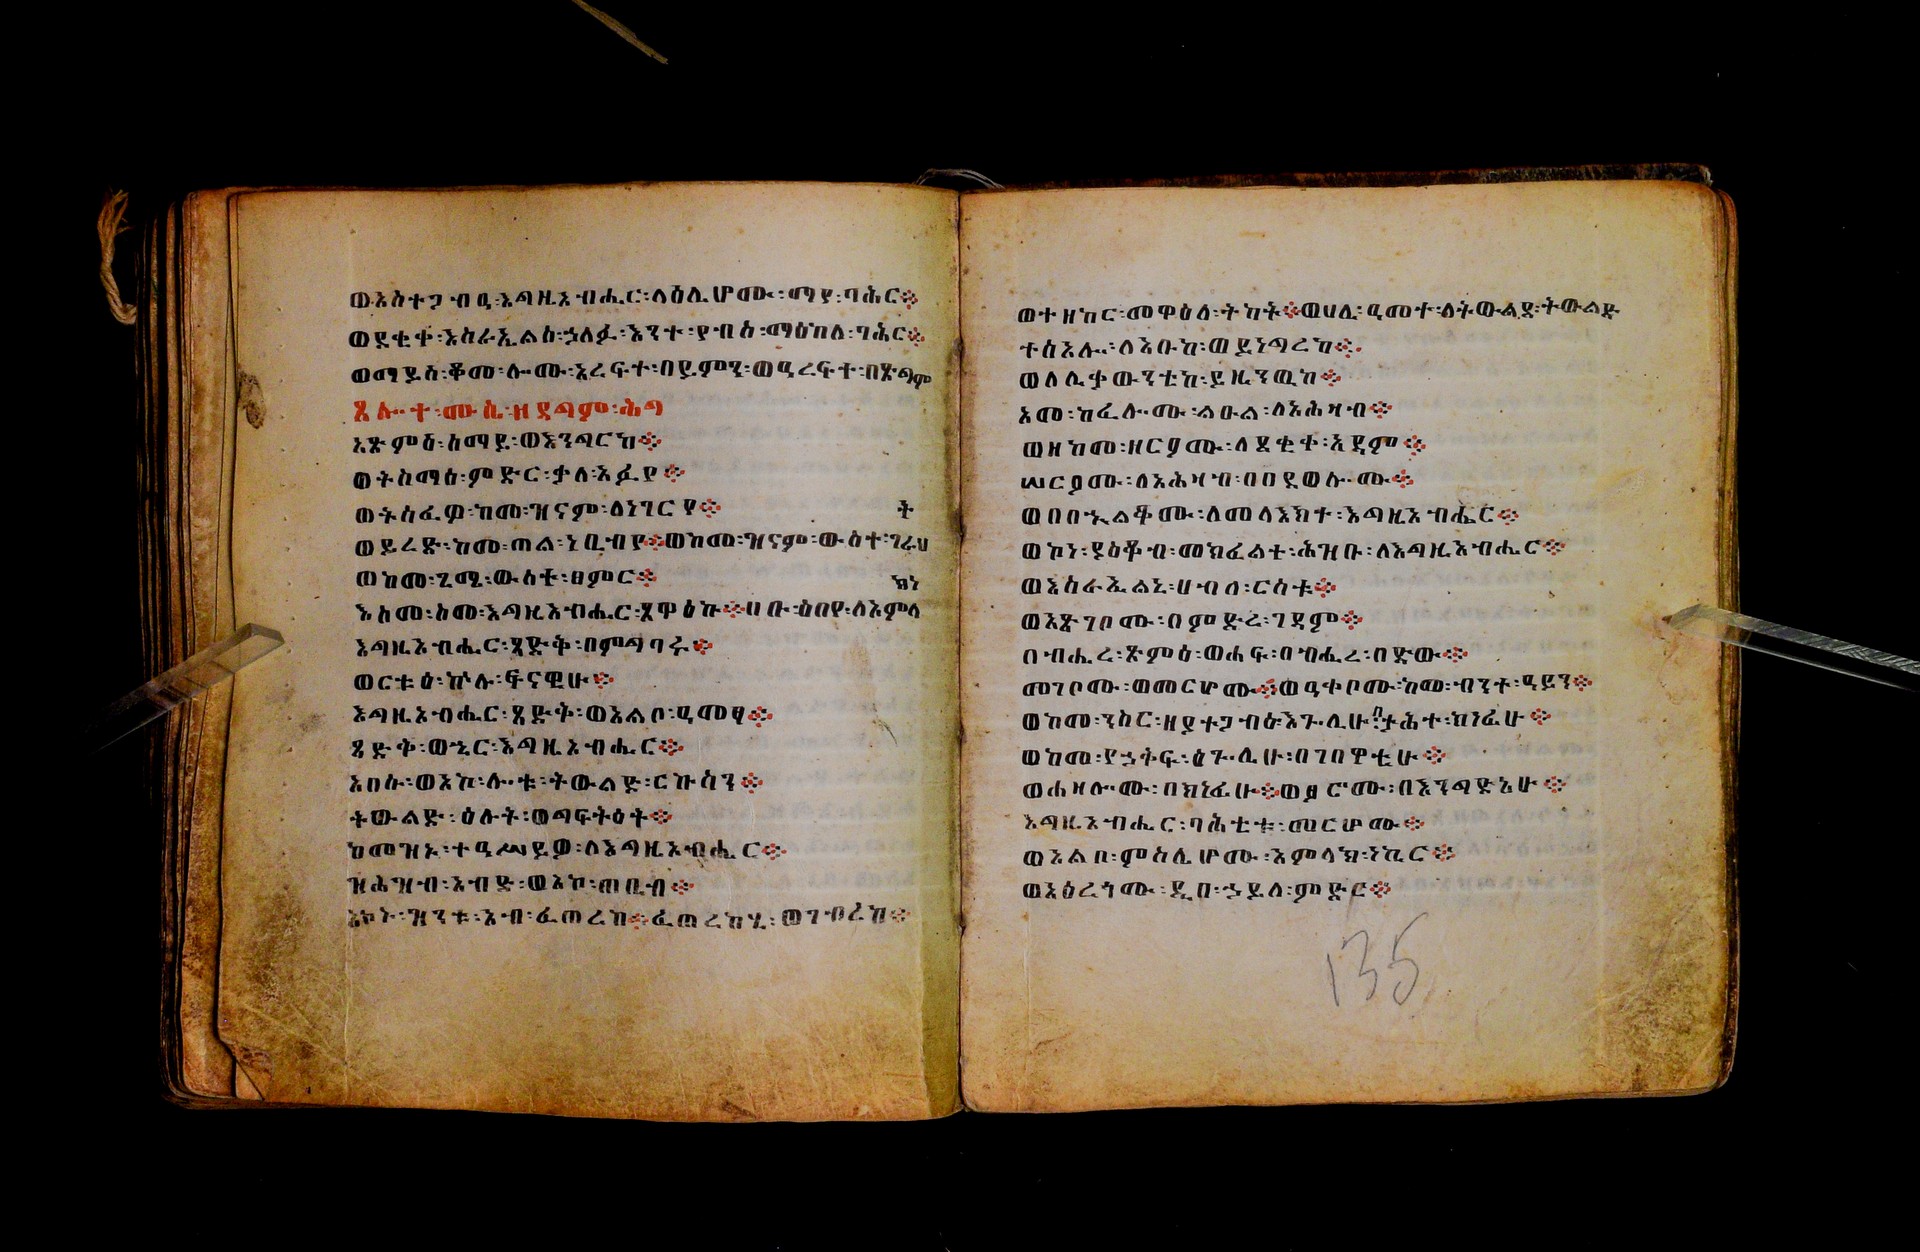 ወአስተጋብዒ፡እግዚአብሔር፡ላዕሌሆሙ፡ማየ፡ባሕር፨
ወደቂቀ፡እስራኤልሰ፡ኃለፉ፡እንተ፡የብስ፡ማዕከለ፡ባሕር፨
ወማይሰ፡ቆመ፡ሎሙ፡አረፍተ፡በየምን፡ወዓረፍተ፡በፀጋም
ጸሎተ፡ሙሴ፡ዘዳግም፡ሕግ
አጽምዕ፡ሰማይ፡ወእንግርከ፨
ወትስማዕ፡ምድር፡ቃለ፡አፉየ፨
ወትሰፈዎ፡ከመ፡ዝናም፡ለነገርየ፨
ት
ወይረድ፡ከመ፡ጠል፡ነቢብየ፨ወከመ፡ዝናም፡ውስተ፡ገራህ
ወከመ፡ጊሜ፡ውስቴ፡ፀምር፨
ክነ
እስመ፡ስመ፡እግዚአብሔር፡ጸዋዕኩ፨ሀቡ፡ዕበየ፡ለአምላ
እግዚአብሔር፡ጻድቅ፡በምግባሩ፨
ወርቱዕ፡ኵሉ፡ፍናዊሁ፨
እግዚአብሔር፡ጻድቅ፡ወአልቦ፡ዓመፃ፨
ጻድቅ፡ወኄር፡እግዚአብሔር፨
አበሱ፡ወአኮ፡ሎቱ፡ትውልድ፡ርኩስን፨
ትውልድ፡ዕሉት፡ወግፍትዕት፨
ከመዝኑ፡ተዓሥይዎ፡ለእግዚአብሔር፨
ዝሕዝብ፡አብድ፡ወአኮ፡ጠቢብ፨
አኮኑ፡ዝንቱ፡አብ፡ፈጠረከ፨ፈጠረከሂ፡ወገብረከ፨
ወተዘከር፡መዋዕለ፡ትካት፨ወሀሊ፡ዓመተ፡ለትውልደ፡ትውልድ
ተስአሎ፡ለአቡከ፡ወይነግረከ፨
ወለሊቃውንቲከ፡ይዜንዉከ፨
አመ፡ከፈሎሙ፡ልዑል፡ለአሕዛብ፨
ወዘከመ፡ዘርዖሙ፡ለደቂቀ፡አዳም፨
ሠርዖሙ፡ለአሕዛብ፡በበደወሎሙ፨
ወበበኁልቆሙ፡ለመላእክተ፡እግዚአብሔር፨
ወኮነ፡ያዕቆብ፡መክፈልተ፡ሕዝቡ፡ለእግዚአብሔር፨
ወእስራኤልኒ፡ሀብለ፡ርስቱ፨
ወአጽገቦሙ፡በምድረ፡ገዳም፨
በብሔረ፡ጽምዕ፡ወሐፍ፡በብሔረ፡በድው፨
መገቦሙ፡ወመርሆሙ፨ወዓቀቦሙ፡ከመ፡ብንተ፡ዓይን፨
ወከመ፡ንስር፡ዘያተጋብዕ፡እጕሊሁ፡ታሕተ፡ክነፊሁ፨
ወከመ፡የኃቅፍ፡ዕጕሊሁ፡በገበዋቲሁ፨
ወሐዘሎሙ፡በክነፊሁ፨ወፆሮሙ፡በእንግድኣሁ፨
እግዚአብሔር፡ባሕቲቱ፡መርሆሙ፨
ወአልቦ፡ምስሌሆሙ፡አምላክ፡ነኪር፨
ወአዕረጎሙ፡ዲበ፡ኃይለ፡ምድር፨
135